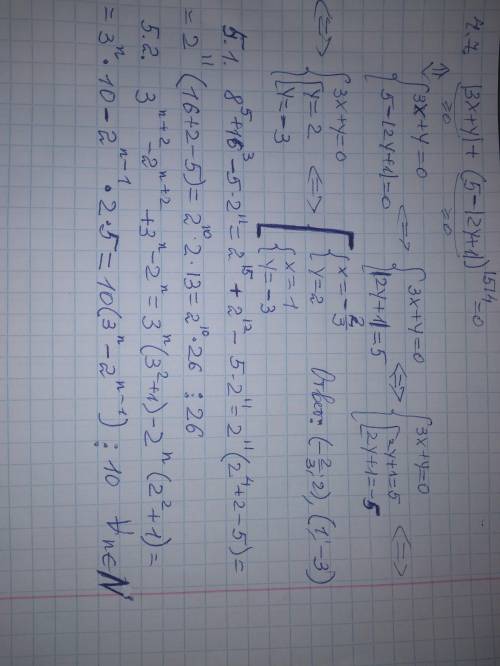 4.7 |3x+y| + (5-|2y+1|)^1514 = 0
≥0 ≥0
⇕
{3x+y=0 5-|2y+1|=0 <=> {3x+y=0 |2y+1|=5 <=> {3x+y=0 [2y+1=5 2y+1=-5 <=>
<=> {3x+y=0 [y=2 y=-3 <=> [{x=-2/3 y=2 {x=1 y=-3 Ответ: (-2/3; 2), (1; -3)
5.1. 8^5+16^3-5·2^11=2^15+2^12-5·2^11=2^11(2^4+2-5)=
=2^11(16+2-5)=2^10·2·13=2^10·26 ⋮ 26
5.2. 3^n+2-2^n+2+3^n-2^n=3^n(3^2+1)-2^n(2^2+1)=
=3^n·10-2^n-1·2·5=10(3^n-2^n-1) ⋮ 10 ∀n∈N